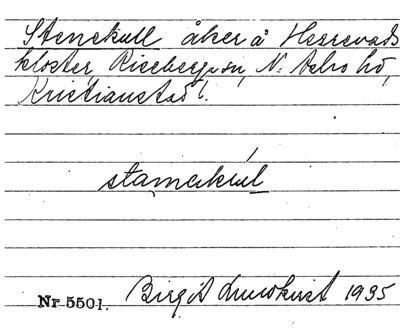 Stenekull åker å Herrevads
kloster, Riseberga sn, N. Åsbo hd,
Kristianstad l.
stamekúl
Nr 5501. Birgit Lundkvist 1935